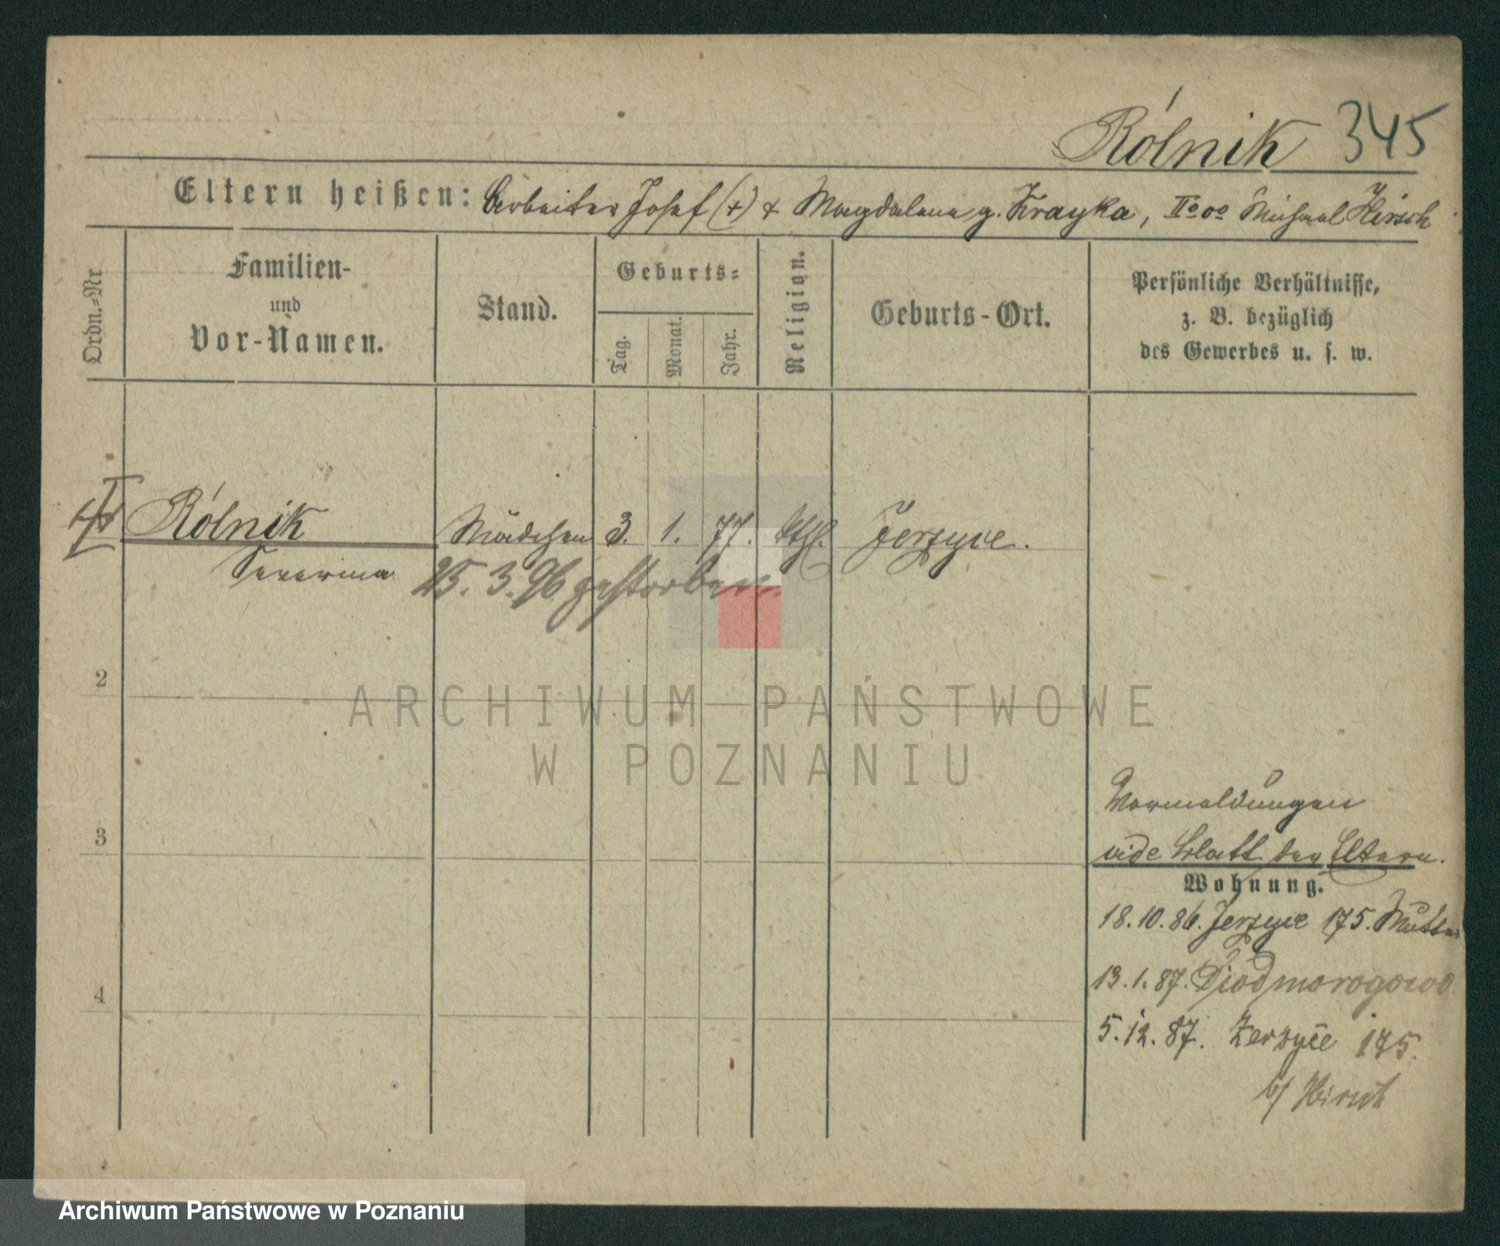 Rólnik 345
Eltern heißen: Arbeiter Josef (+) + Magdalena g. Krayka, IIº oo Michael Hirsch
Ordn.-Nr
Familien-
und
Vor-Namen.
Stand.
Geburts-
Tag.
Monat.
Jahr.
Religion.
Geburts-Ort.
Persönliche Verhältnisse,
z. B. bezüglich
des Gewerbes u. s. w.
Rólnik Mädchen 3. 1. 77. kthl. Jerzyce.
Severina 25. 3. 96 gestorben.
2
ARCHIWUM PAŃSTWOWE
W POZNANIU
Vormeldungen
3
vide Blatt der Eltern.
Wohnung.
18.10.86. Jerzyce 175. Mutter
13.1.87.
4
5.12.87. Jerzyce 175.
b/ Hirsch
Archiwum Państwowe w Poznaniu